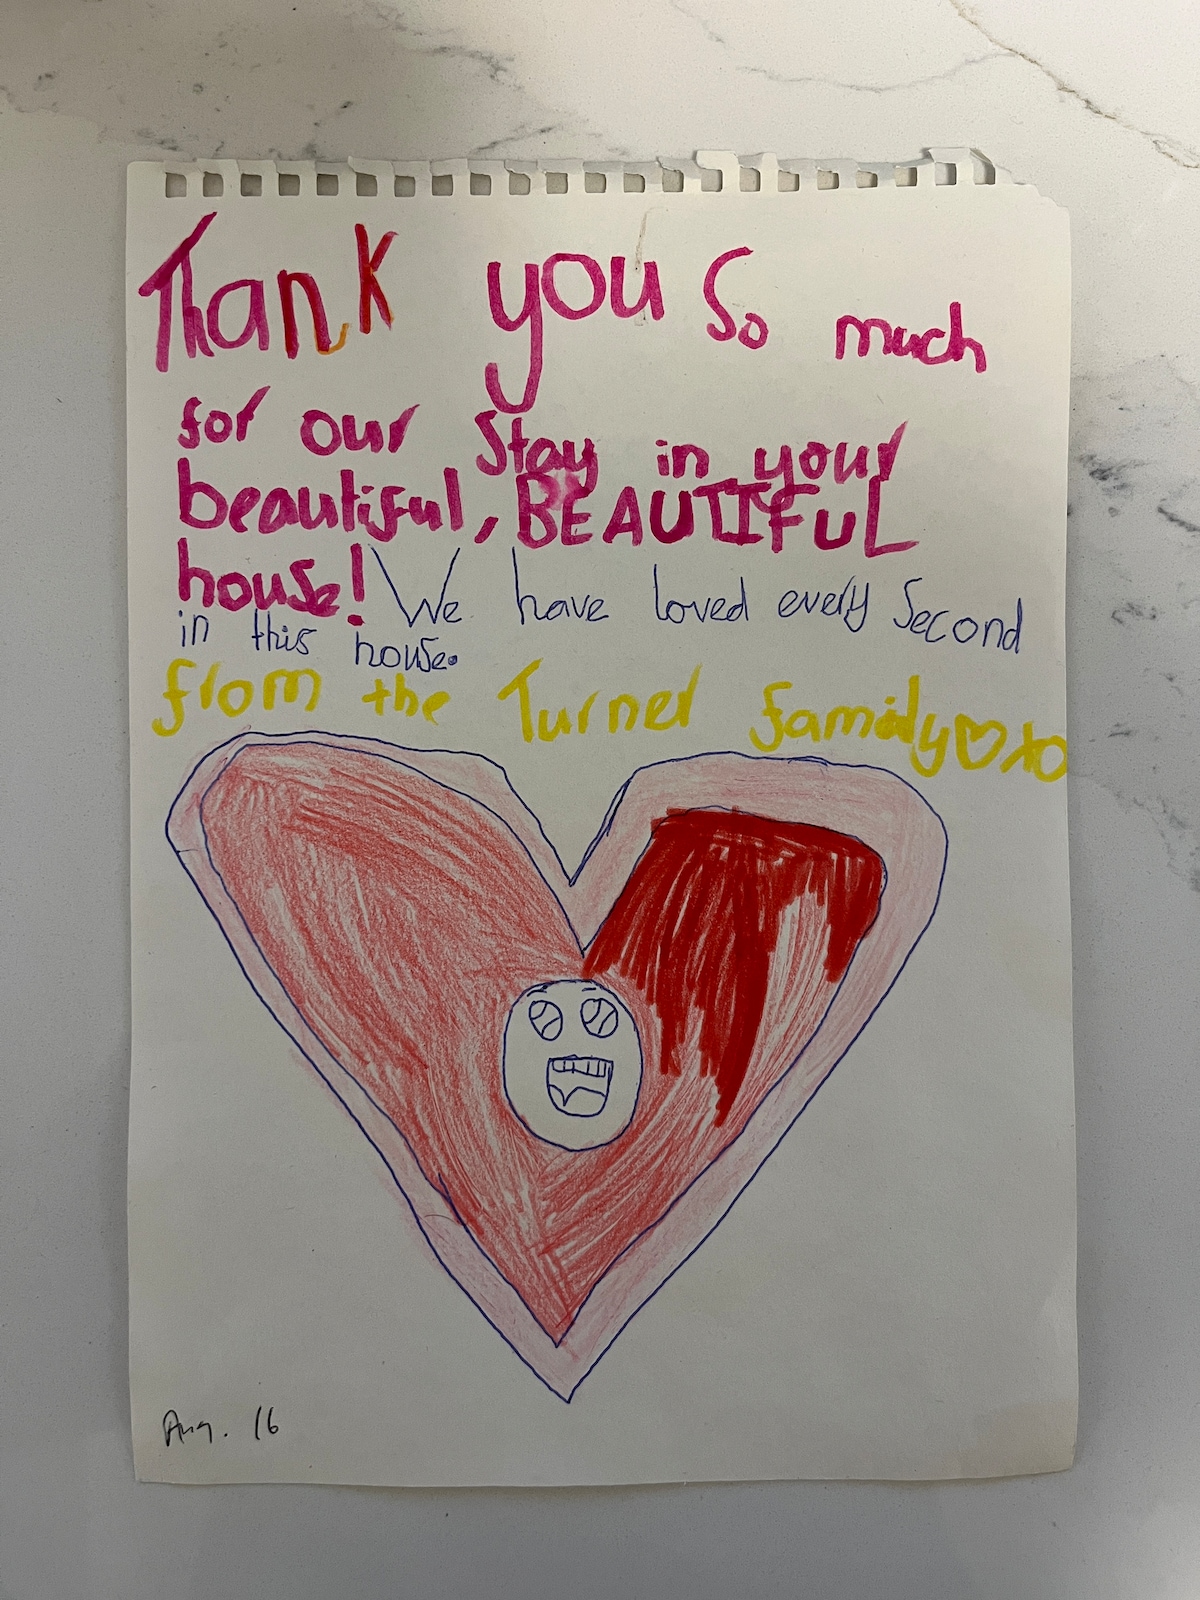 Thank you so much
for our stay in your
beautiful, BEAUTIFUL
house! We have loved every second
in this house.
from the Turner family♡xo
Aug. 16